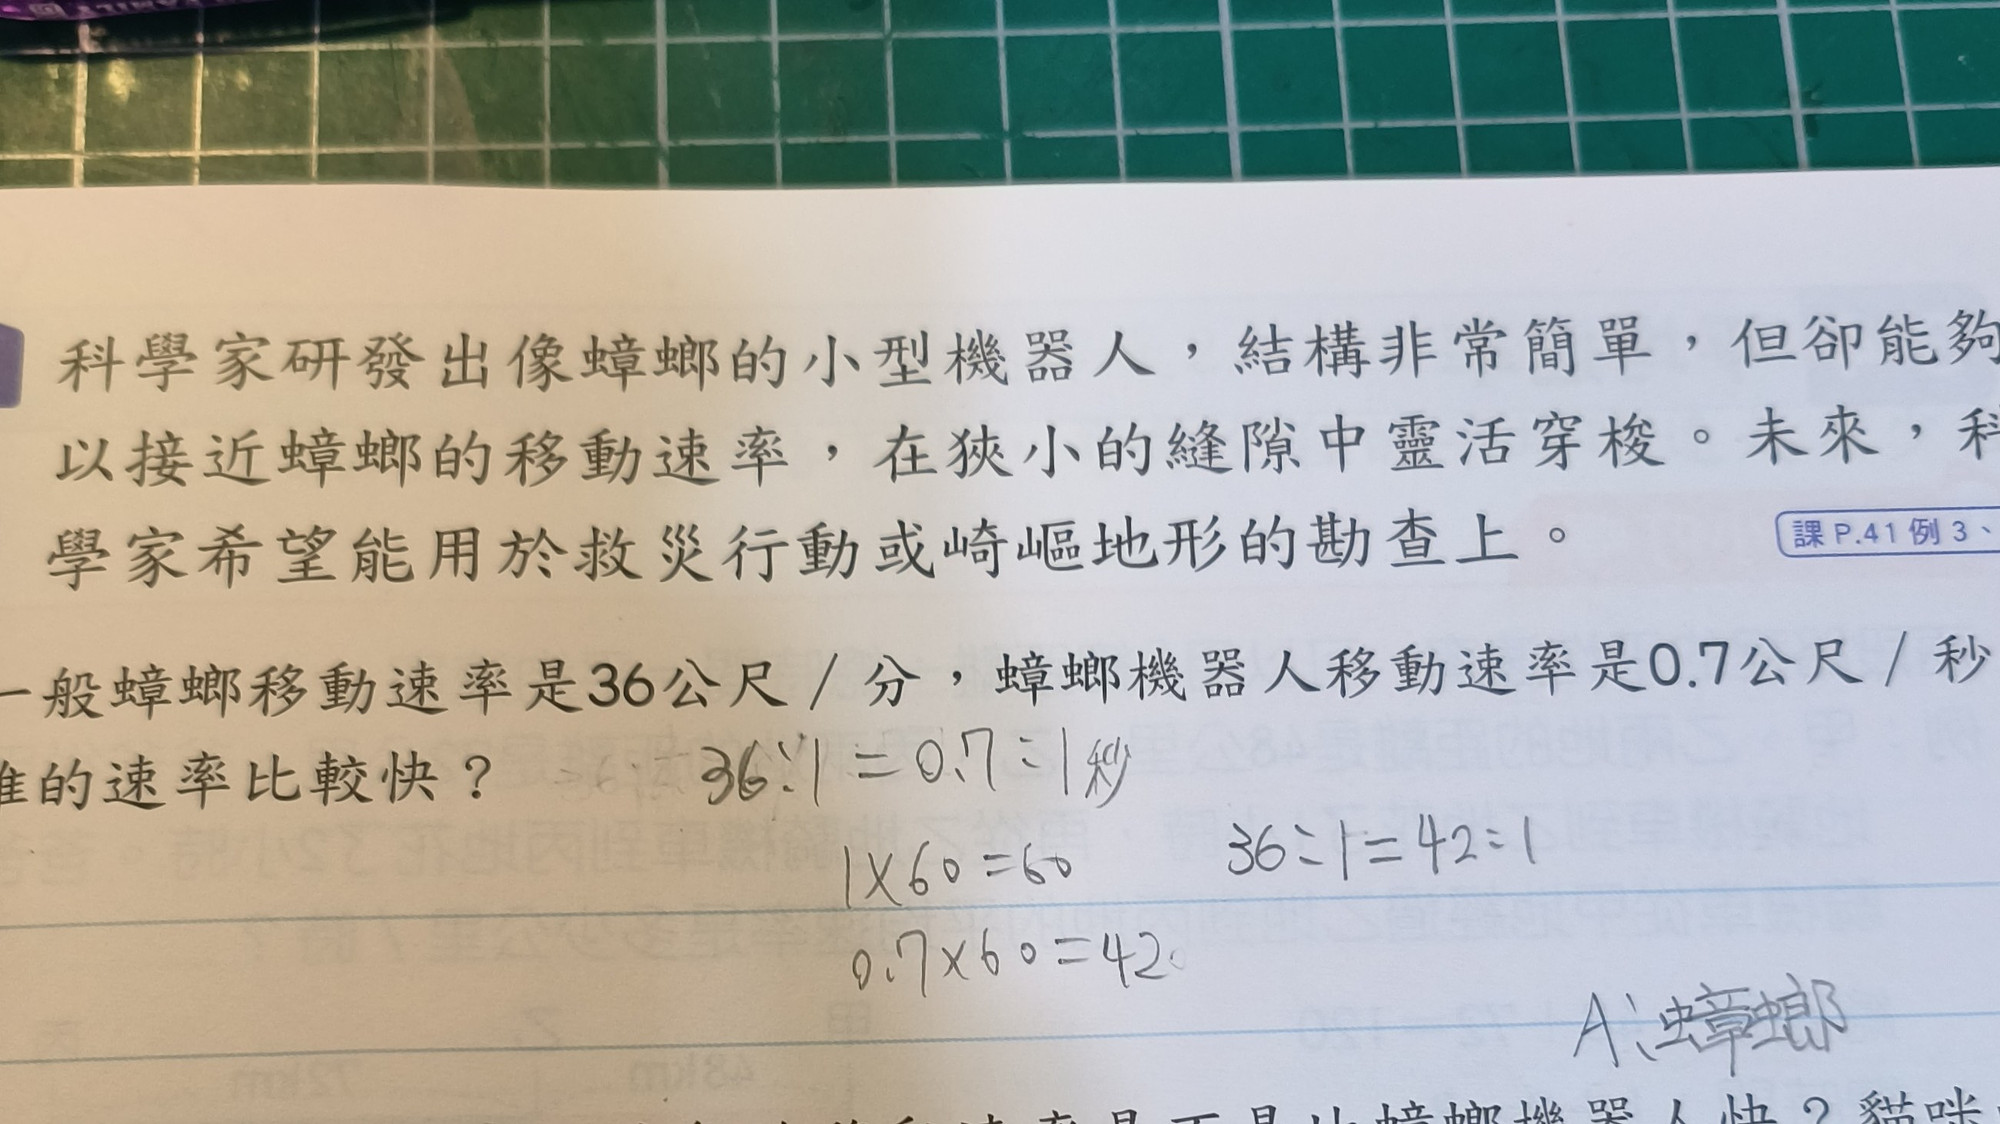 科學家研發出像蟑螂的小型機器人，結構非常簡單，但卻能夠
以接近蟑螂的移動速率，在狹小的縫隙中靈活穿梭。未來，科
學家希望能用於救災行動或崎嶇地形的勘查上。
課 P.41 例 3、
一般蟑螂移動速率是36公尺/分，蟑螂機器人移動速率是0.7公尺/秒
誰的速率比較快？
36:1=0.7:1秒
1×60=60
36:1=42:1
0.7×60=42
A:蟑螂
是不是比蟑螂機器人快？貓咪